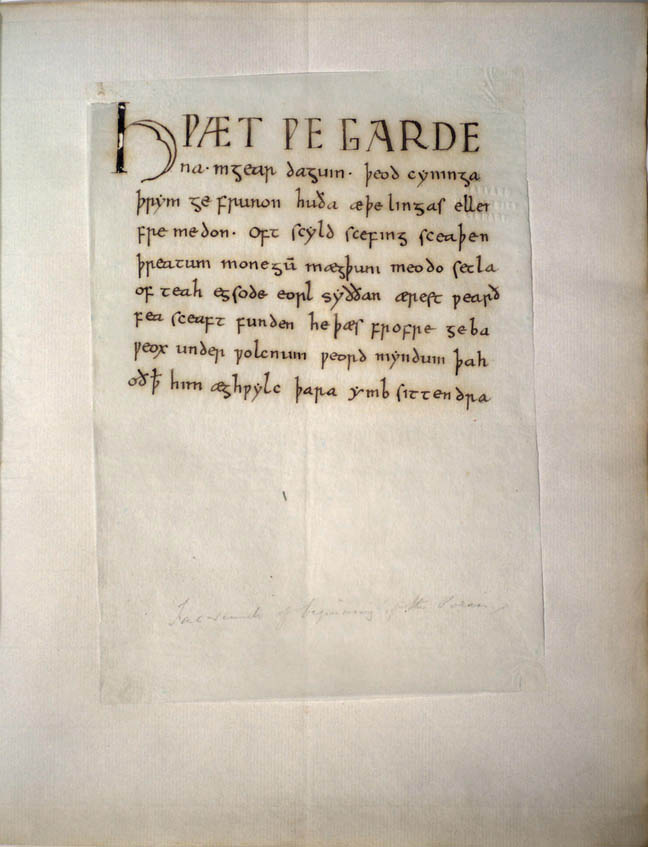 HǷÆT ǷE GARDE
na· ingear dagum· þeod cyninga
þrym ge frunon huða æþelingas ellen
fre medon· oft scyld scefing sceaþen
þreatum monegū mægþum meodo setla
of teah egsode eorl syððan ærest ƿearð
fea sceaft funden he þæs frofre geba
ƿeox under ƿolcnum ƿeord myndum þah
oð ꝥ him æghƿylc þara ymb sittendra
Fac-simile of beginning of the Poem